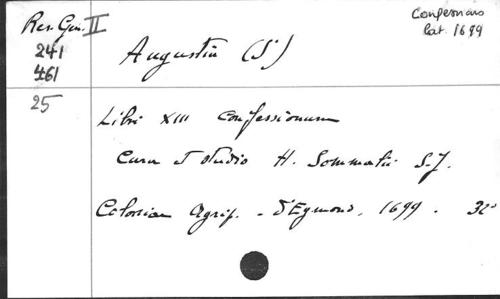 Res. Gen. II
241
461
25
Confessions
lat. 1699
Augustin (S)
Libri XIII Confessionum
Cura et studio H. Sommalii S.J.
Coloniae Agrip. - d'Egmond, 1699. 32°